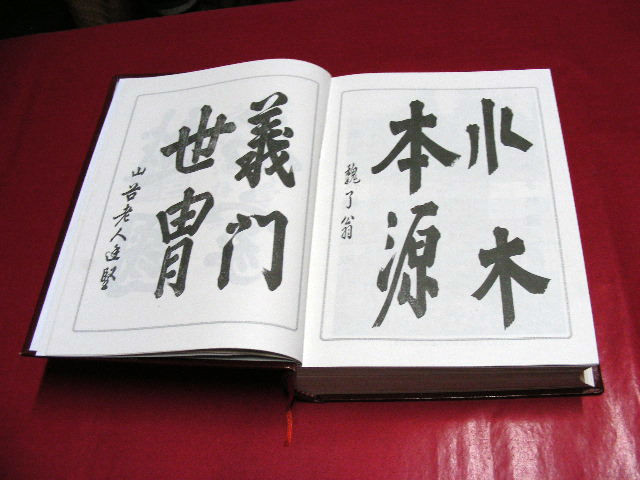 水木
本源
魏了翁
義门
世胄
山谷老人庭堅